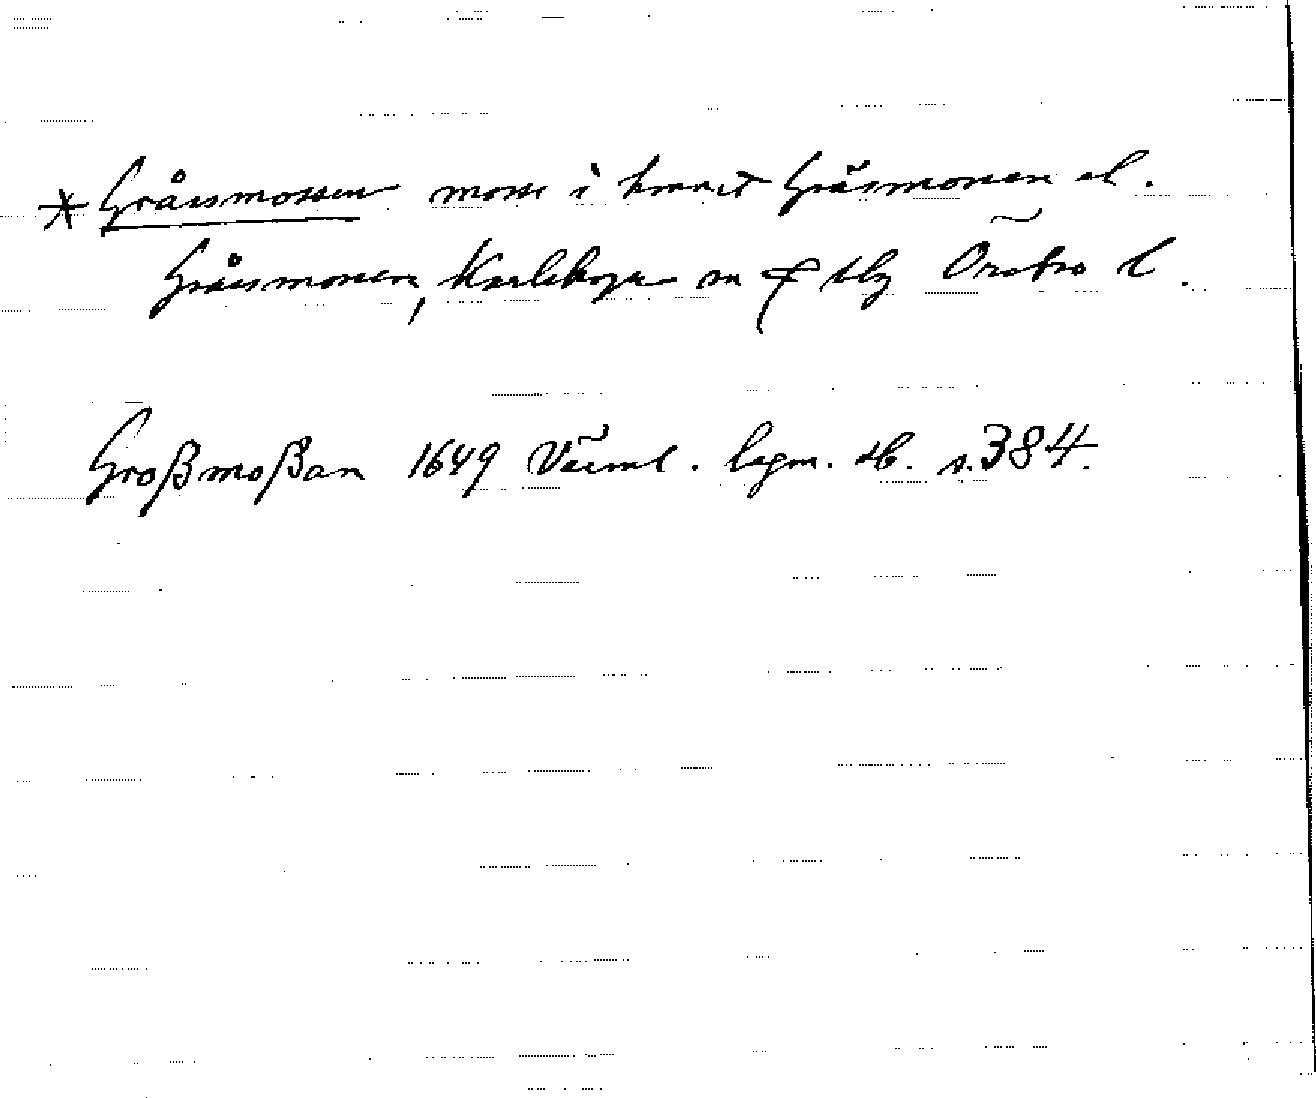 * Gråssmossen mosse i hemmet Gräsmossen el.
Gråssmossen, Karlskoga sn f hbg Örebro l.
Großmoßan 1649 Värml. legm. tb. s. 384.